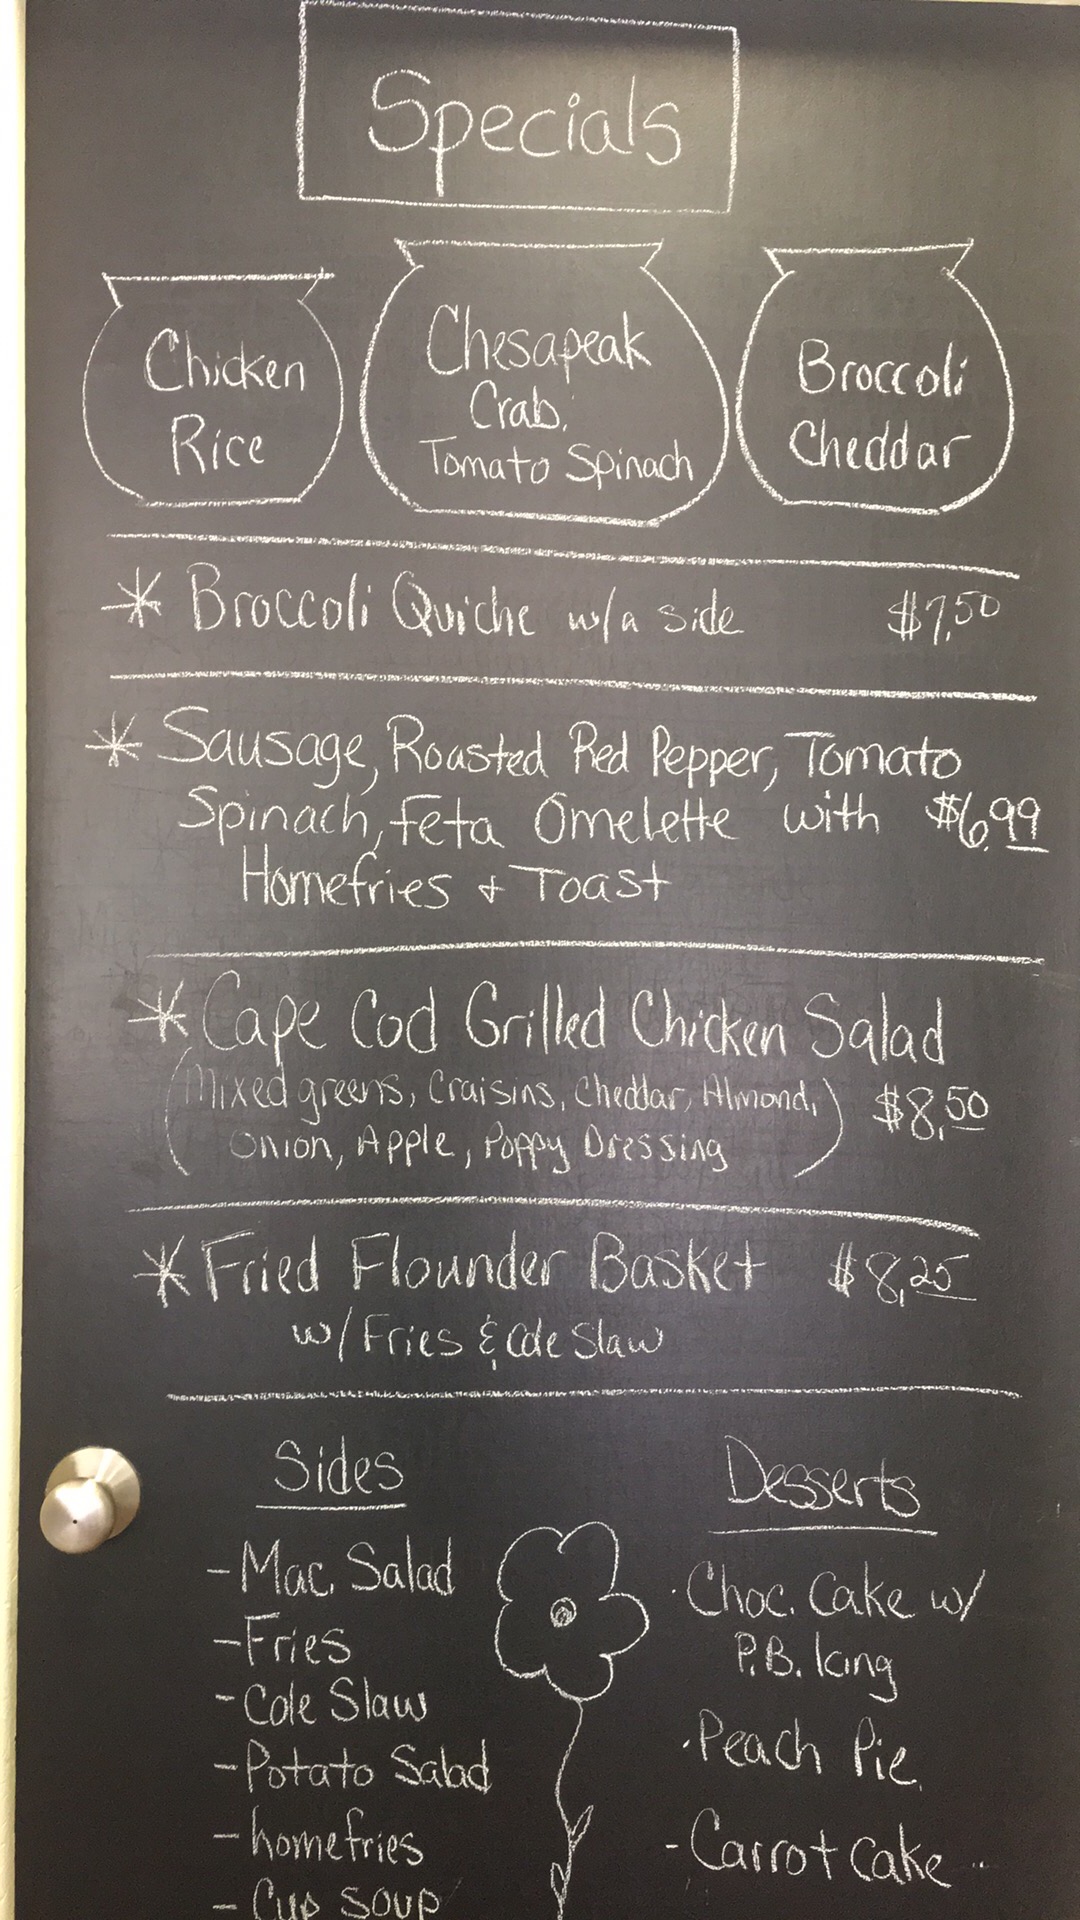 Specials
Chicken
Rice
Chesapeak
Crab.
Tomato Spinach
Broccoli
Cheddar
* Broccoli Quiche w/a side $7.50
* Sausage, Roasted Red Pepper, Tomato
Spinach, feta Omelette with $6.99
Homefries + Toast
* Cape Cod Grilled Chicken Salad
(Mixed greens, Craisins, Cheddar, Almond,
Onion, Apple, Poppy Dressing) $8.50
* Fried Flounder Basket $8.25
w/ Fries & Cole Slaw
Sides
- Mac. Salad
- Fries
- Cole Slaw
- Potato Salad
- homefries
- Cup soup
Desserts
· Choc. Cake w/
P.B. Icing
· Peach Pie.
- Carrot cake